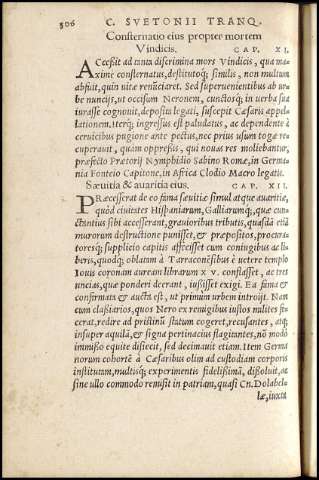 306 C. SVETONII TRANQ.
Consternatio eius propter mortem
Vindicis. CAP. XI.
Accessit ad tanta discrimina mors Vindicis, qua ma-
xime consternatus, destitutoq; similis, non multum
abfuit, quin uitæ renūciaret. Sed superuenientibus ab ur
be nuncijs, ut occisum Neronem, cunctosq; in uerba sua
iurasse cognouit, deposita legati, suscepit Cæsaris appel-
lationem, iterq; ingressus est paludatus, ac dependente à
ceruicibus pugione ante pectus, nec prius usum togæ re-
cuperauit, quàm oppressis, qui nouas res moliebantur,
præfecto Prætorij Nymphidio Sabino Romæ, in Germa
nia Fonteio Capitone, in Africa Clodio Macro legatis.
Sæuitia & auaritia eius. CAP. XII.
PRæcesserat de eo fama sæuitiæ simul atque auaritiæ,
quòd ciuitates Hispaniarum, Galliarumq;, quæ cun-
ctantius sibi accesserant, grauioribus tributis, quasdā etiā
murorum destructione punisset, & præpositos, procura-
toresq; supplicio capitis affecisset cum coniugibus ac li-
beris, quodq; oblatam à Tarraconēsibus è uetere templo
Iouis coronam auream librarum x v. conflasset, ac tres
uncias, quæ ponderi deerant, iussisset exigi. Ea fama &
confirmata & aucta est, ut primùm urbem introijt. Nam
cum clasiarios, quos Nero ex remigibus iustos milites fe
cerat, redire ad pristinū statum cogeret, recusantes, atq;
insuper aquilā, & signa pertinacius flagitantes, nō modò
immisso equite disiecit, sed decimauit etiam. Item Germa
norum cohortē à Cæsaribus olim ad custodiam corporis
institutam, multisq; experimentis fidelißimā, dissoluit, ac
sine ullo commodo remisit in patriam, quasi Cn. Dolabel
læ, iuxta